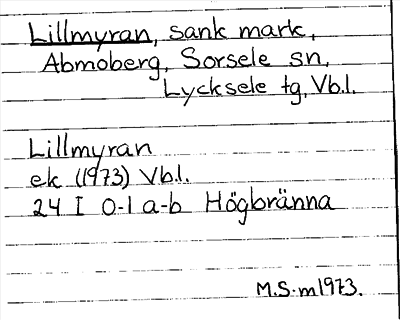 Lillmyran, sank mark,
Abmoberg, Sorsele sn,
Lycksele tg, Vb.l.
Lillmyran
ek (1973) Vb.l.
24 I 0-1 a-b Högbränna
M.S. m1973.